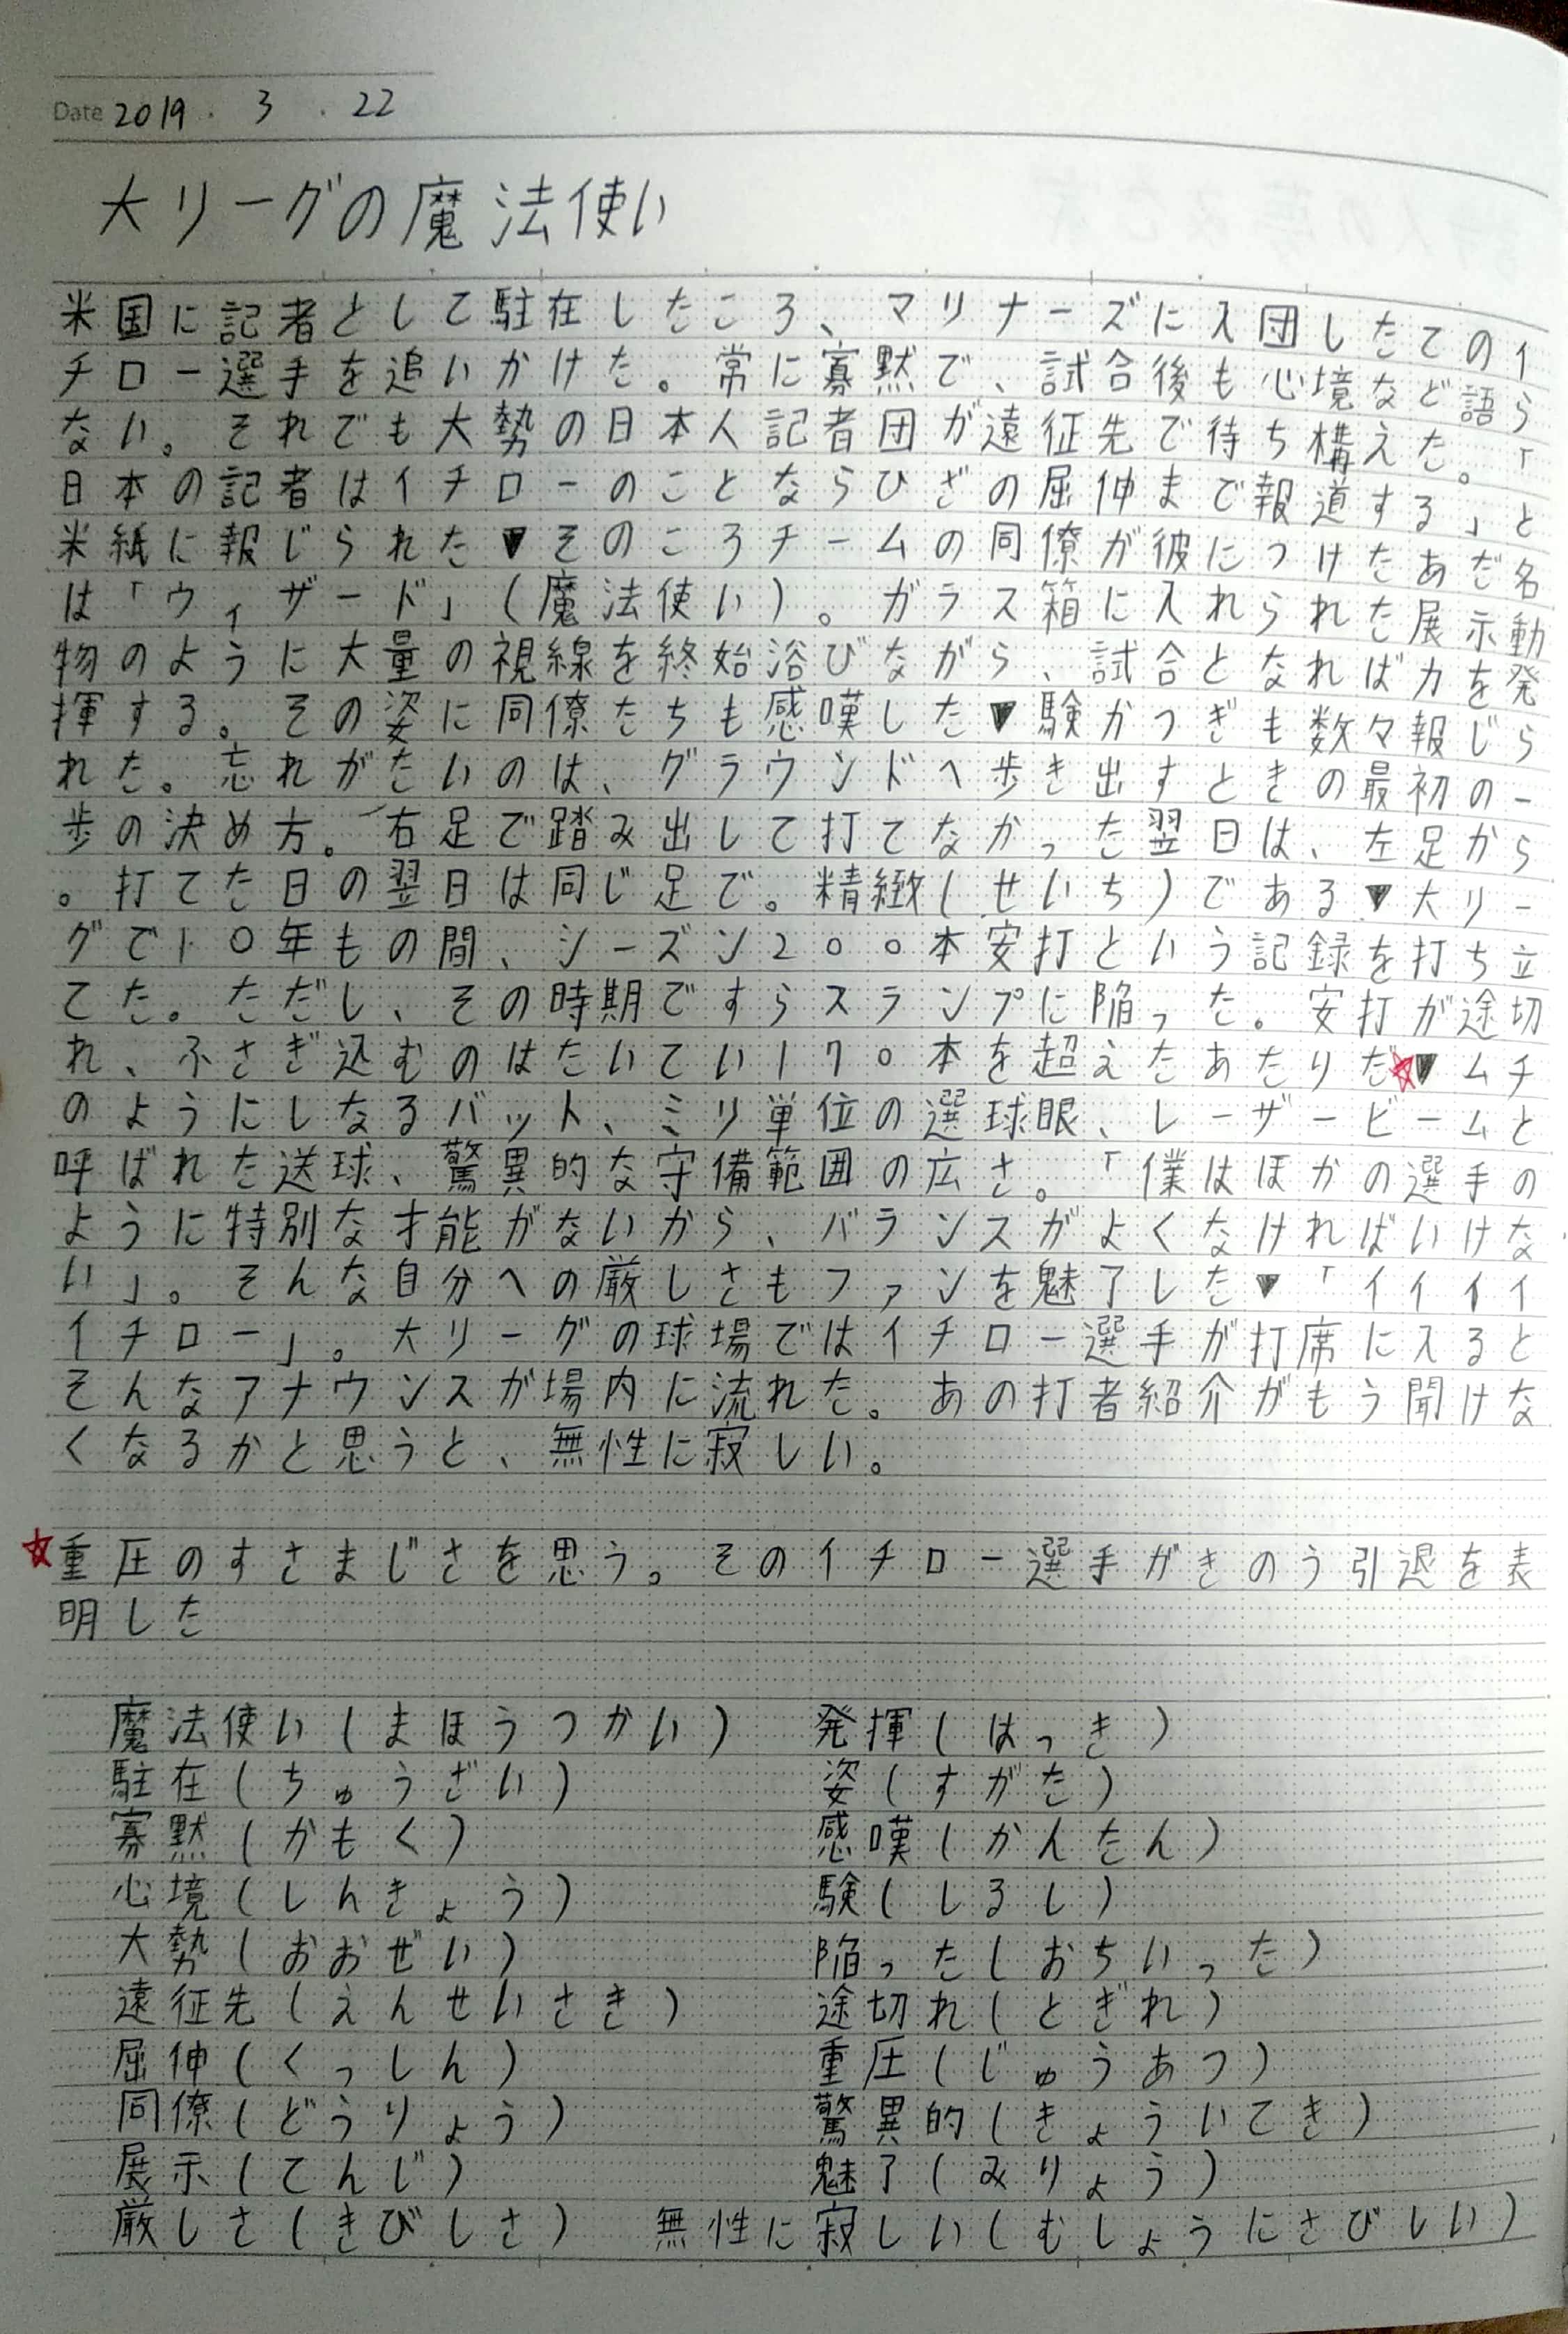 Date 2019 . 3 . 22
大リーグの魔法使い
米国に記者として駐在したころ、マリナーズに入団したてのイ
チロー選手を追いかけた。常に寡黙で、試合後も心境など語ら
ない。それでも大勢の日本人記者団が遠征先で待ち構えた。「
日本の記者はイチローのことならひざの屈伸まで報道する」と
米紙に報じられた▼そのころチームの同僚が彼につけたあだ名
は「ウィザード」(魔法使い)。ガラス箱に入れられた展示動
物のように大量の視線を終始浴びながら、試合となれば力を発
揮する。その姿に同僚たちも感嘆した▼験かつぎも数々報じら
れた。忘れがたいのは、グラウンドへ歩き出すときの最初の一
歩の決め方。右足で踏み出して打てなかった翌日は、左足から
。打てた日の翌日は同じ足で。精緻(せいち)である▼大リー
グで10年もの間、シーズン200本安打という記録を打ち立
てた。ただし、その時期ですらスランプに陥った。安打が途切
れ、ふさぎ込むのはたいてい170本を超えたあたりだ☆▼ムチ
のようにしなるバット、ミリ単位の選球眼、レーザービームと
呼ばれた送球、驚異的な守備範囲の広さ。「僕はほかの選手の
ように特別な才能がないから、バランスがよくなければいけな
い」。そんな自分への厳しさもファンを魅了した▼「イイイイ
イチロー」。大リーグの球場ではイチロー選手が打席に入ると
そんなアナウンスが場内に流れた。あの打者紹介がもう聞けな
くなるかと思うと、無性に寂しい。
☆重圧のすさまじさを思う。そのイチロー選手がきのう引退を表
明した
魔法使い(まほうつかい) 発揮(はっき)
駐在(ちゅうざい) 姿(すがた)
寡黙(かもく) 感嘆(かんたん)
心境(しんきょう) 験(しるし)
大勢(おおぜい) 陥った(おちいった)
遠征先(えんせいさき) 途切れ(とぎれ)
屈伸(くっしん) 重圧(じゅうあつ)
同僚(どうりょう) 驚異的(きょういてき)
展示(てんじ) 魅了(みりょう)
厳しさ(きびしさ) 無性に寂しい(むしょうにさびしい)